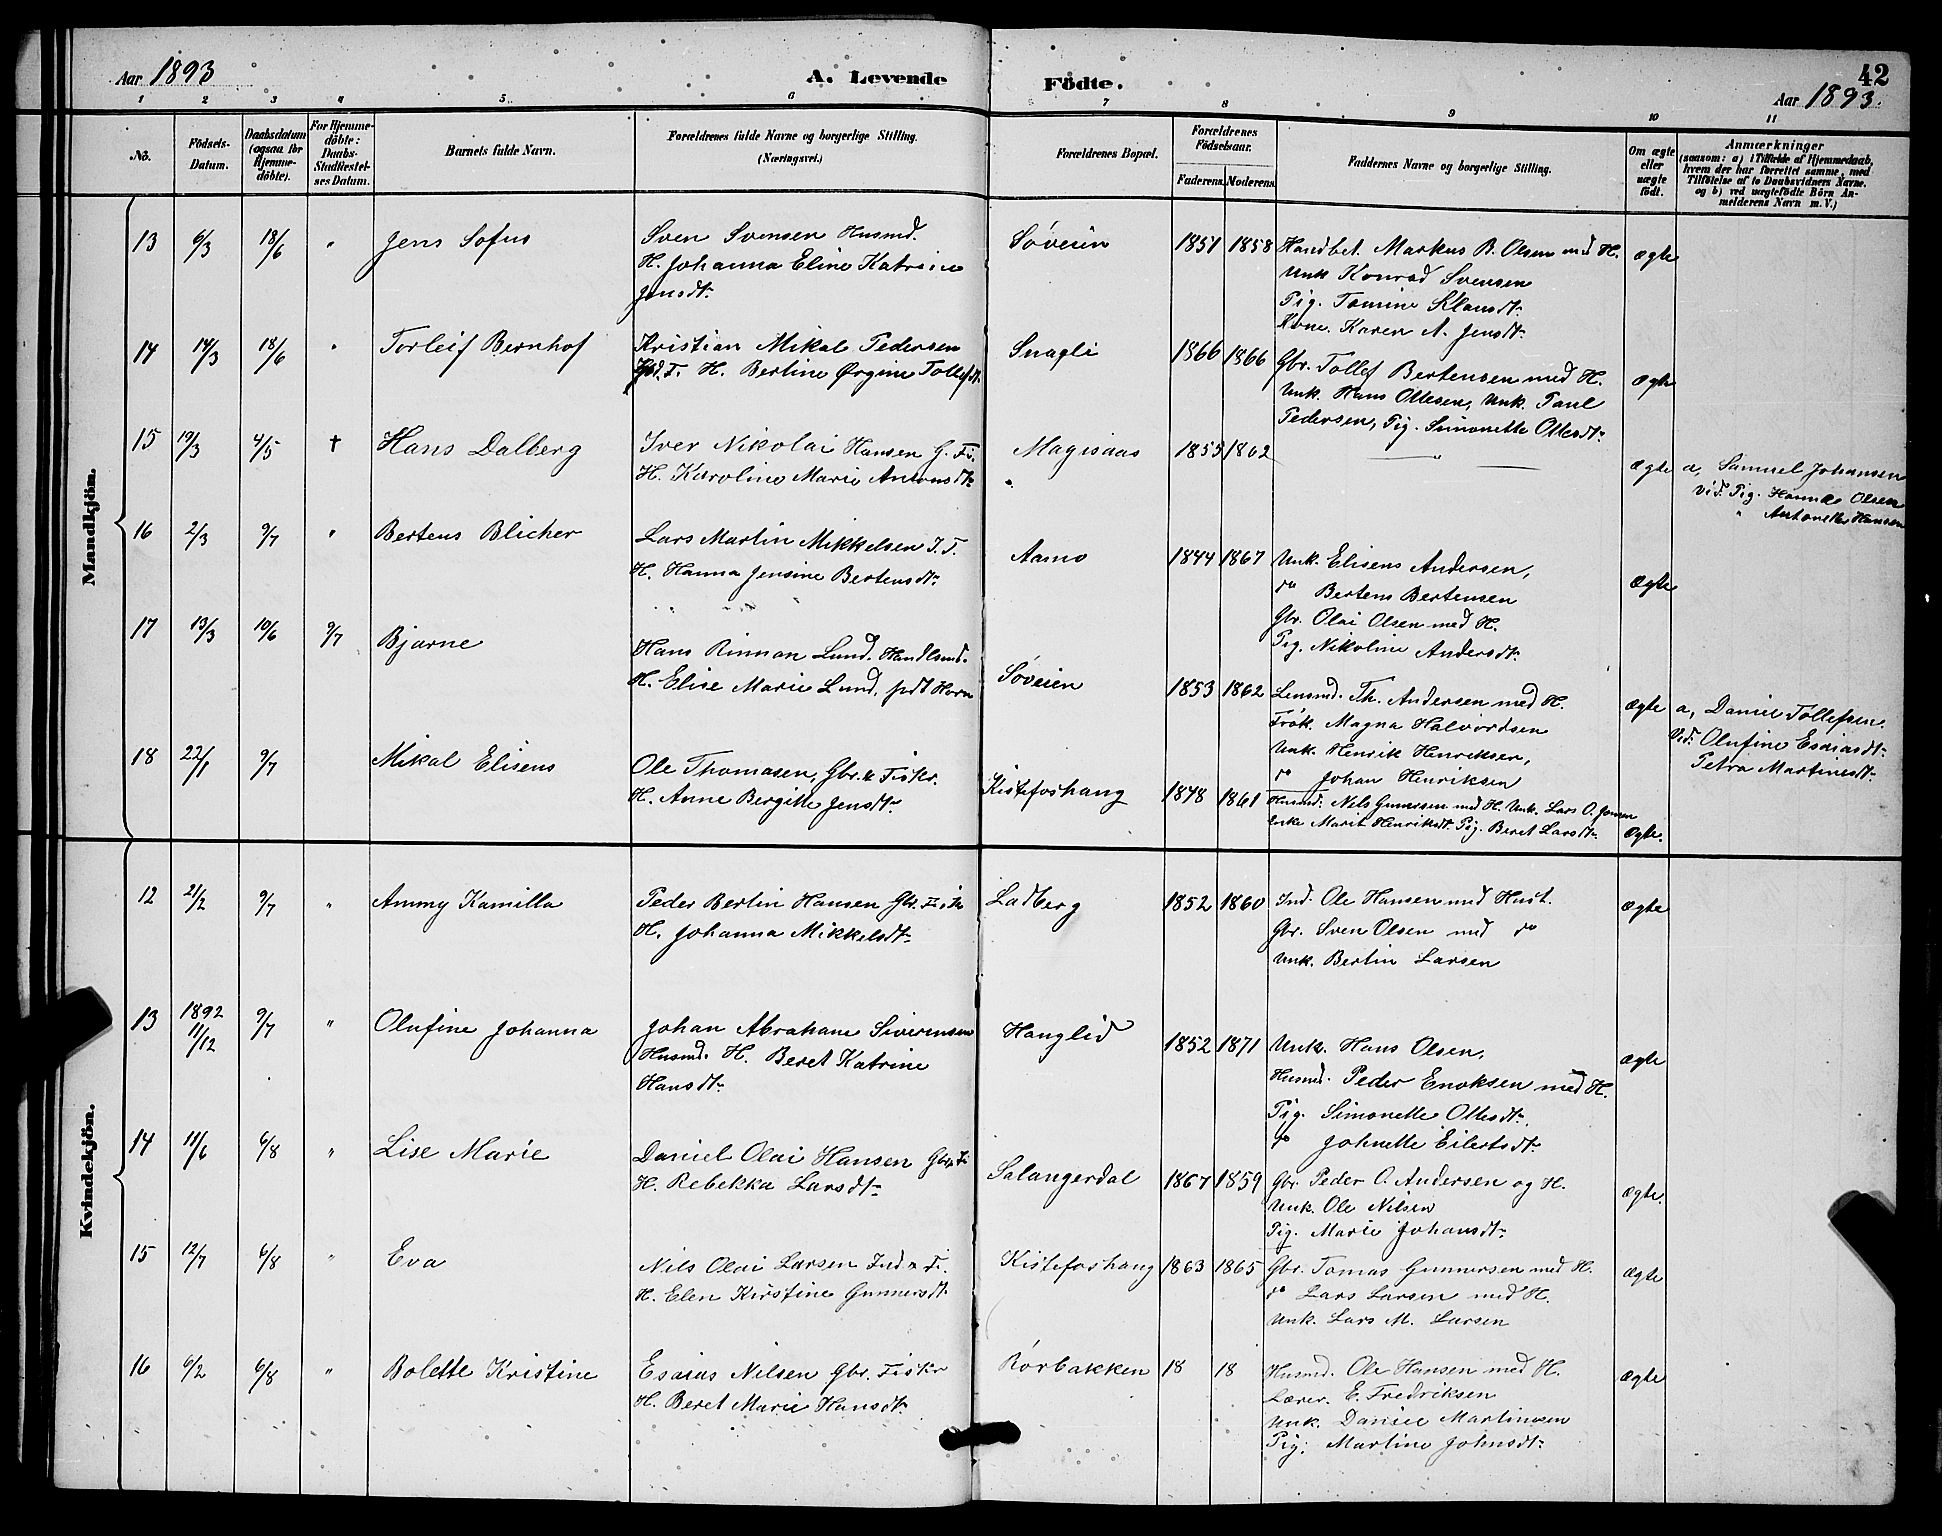 Aar 1893
A. Levende Födte.
42
Aar 1893.
1 2 3 4 5 6 7 8 9 10 11
No.
Födsels-Datum.
Daabsdatum (ogsaa for Hjemme-döbte).
For Hjemme-döbte: Daabs-Stadfæstel-ses Datum.
Barnets fulde Navn.
Forældrenes fulde Navne og borgerlige Stilling. (Næringsvei.)
Forældrenes Bopæl.
Forældrenes Födselsaar.
Faderens. Moderens.
Faddernes Navne og borgerlige Stilling.
Om ægte eller uægte födt.
Anmærkninger
(saasom: a) i Tilfælde af Hjemmedaab, hvem der har forrettet samme, med Tilföielse af to Daabsvidners Navne. og b) ved uægtefödte Börn An-melderens Navn m. V.)
Mandkjön.
13 6/3 18/6 " Jens Sofus
Sven Svensen Husmd.
H. Johanna Eline Katrine
Jensdt.
Søveien 1851 1858
Handbet. Markus B. Olsen med H.
Unk Konrad Svensen
Pig. Tomine Klausdt.
Kone. Karen A. Jensdt.
ægte
14 14/3 18/6 " Torleif Bernhof
Kristian Mikal Pedersen
Gbd. F. H. Bertine Ørgine Tollefsdt.
Snagli 1866 1866
Gbr. Tollef Bertensen med H.
Unk. Hans Ottesen, Unk. Paul
Pedersen, Pig. Simonette Ottesdt.
ægte
15 19/3 4/5 † Hans Dalberg
Iver Nikolai Hansen G. Fi.
H. Karoline Marie Antonsdt.
Magisaas 1855 1862
— " —
ægte
a, Samuel Johansen
Vid. Pig. Hanna Olsen
" Antonette Hansen
16 2/3 9/7 " Bertens Blicher
Lars Martin Mikkelsen I. F.
H. Hanna Jensine Bertensdt.
Aamo 1844 1867
Unk. Elisens Andersen,
do Bertens Bertensen
Gbr. Olai Olsen med H.
Pig. Nikoline Andersdt.
ægte
17 13/3 10/6 9/7 Bjarne
Hans Rinnan Lund. Handlsmd.
H. Elise Marie Lund. født Horn
Søveien 1853 1862
Lensmd. Th. Andersen med H.
Frøk. Magna Halvordsen
Unk. Henrik Henriksen,
do Johan Henriksen
ægte
a, Daniel Tollefsen.
Vid: Olufine Esaiasdt.
Petra Martinsdt.
18 22/1 9/7 Mikal Elisens
Ole Thomasen, Gbr. & Fiskr.
H. Anne Bergitte Jensdt.
Kistefoshaug 1848 1861
Husmd. Nils Gunnersen med H. Unk. Lars O. Jensen
Enke Marit Henriksdt. Pig. Beret Larsdt.
ægte.
Kvindekjön.
12 21/2 9/7 " Ammy Kamilla
Peder Bertin Hansen Gbr. Fisk
H. Johanna Mikkelsdt.
Ladberg 1852 1860
Ind. Ole Hansen med Hust.
Gbr. Sven Olsen med do
Unk. Bertin Larsen
ægte
13 1892 11/12 9/7 " Olufine Johanna
Johan Abraham Sivertsen
Husmd. H. Beret Katrine
Hansdt.
Hanglid 1852 1871
Unk. Hans Olsen,
Husmd. Peder Enoksen med H.
Pig. Simonette Ottesdt.
do Johnette Eilertsdt.
ægte
14 11/6 6/8 " Lise Marie
Daniel Olai Hansen Gbr. Fi
H. Rebekka Larsdt.
Salangerdal 1867 1859
Gbr. Peder O. Andersen og H.
Unk. Ole Nilsen
Pig. Marie Johansdt.
ægte.
15 12/7 6/8 " Eva
Nils Olai Larsen Ind & Fi.
H. Elen Kirstine Gunnersdt.
Kistefoshaug 1863 1865
Gbr. Tomas Gunnersen med H.
do Lars Larsen med H.
Unk. Lars M. Larsen
ægte
16 6/2 6/8 " Bolette Kristine
Esaias Nilsen Gbr. Fiskr
H. Beret Marie Hansdt.
Rørbakken 18 18
Husmd. Ole Hansen med H.
Lærer. E. Fredriksen
Unk. Daniel Martinsen
Pig. Martine Johnsdt.
ægte